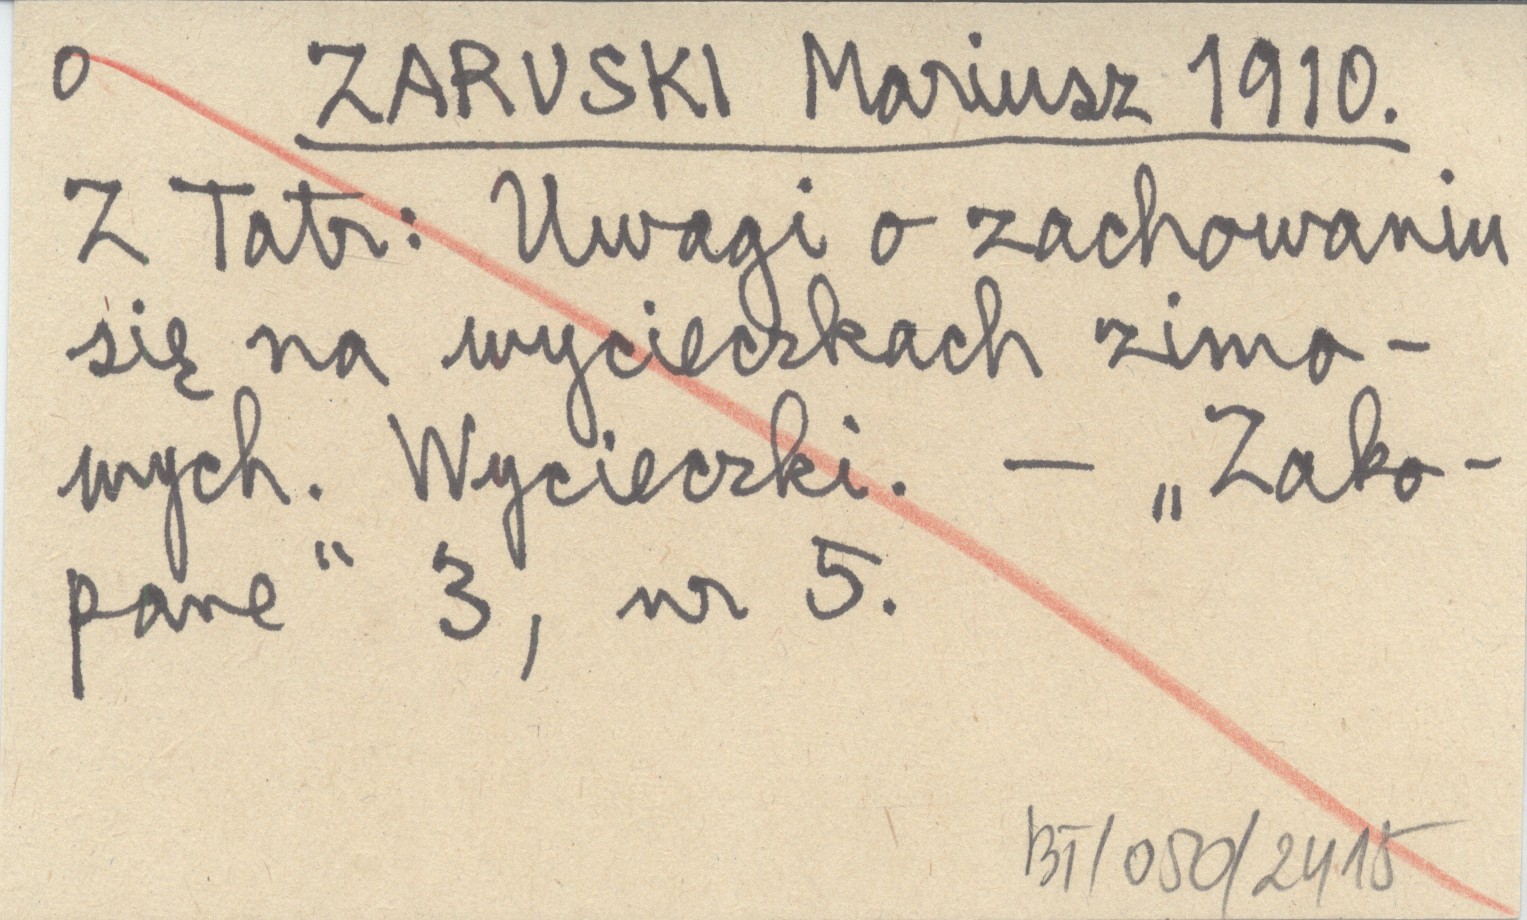 o ZARUSKI Mariusz 1910.
Z Tatr: Uwagi o zachowaniu
się na wycieczkach zimo-
wych. Wycieczki. — „Zako-
pane“ 3, nr 5.
BT/050/2415